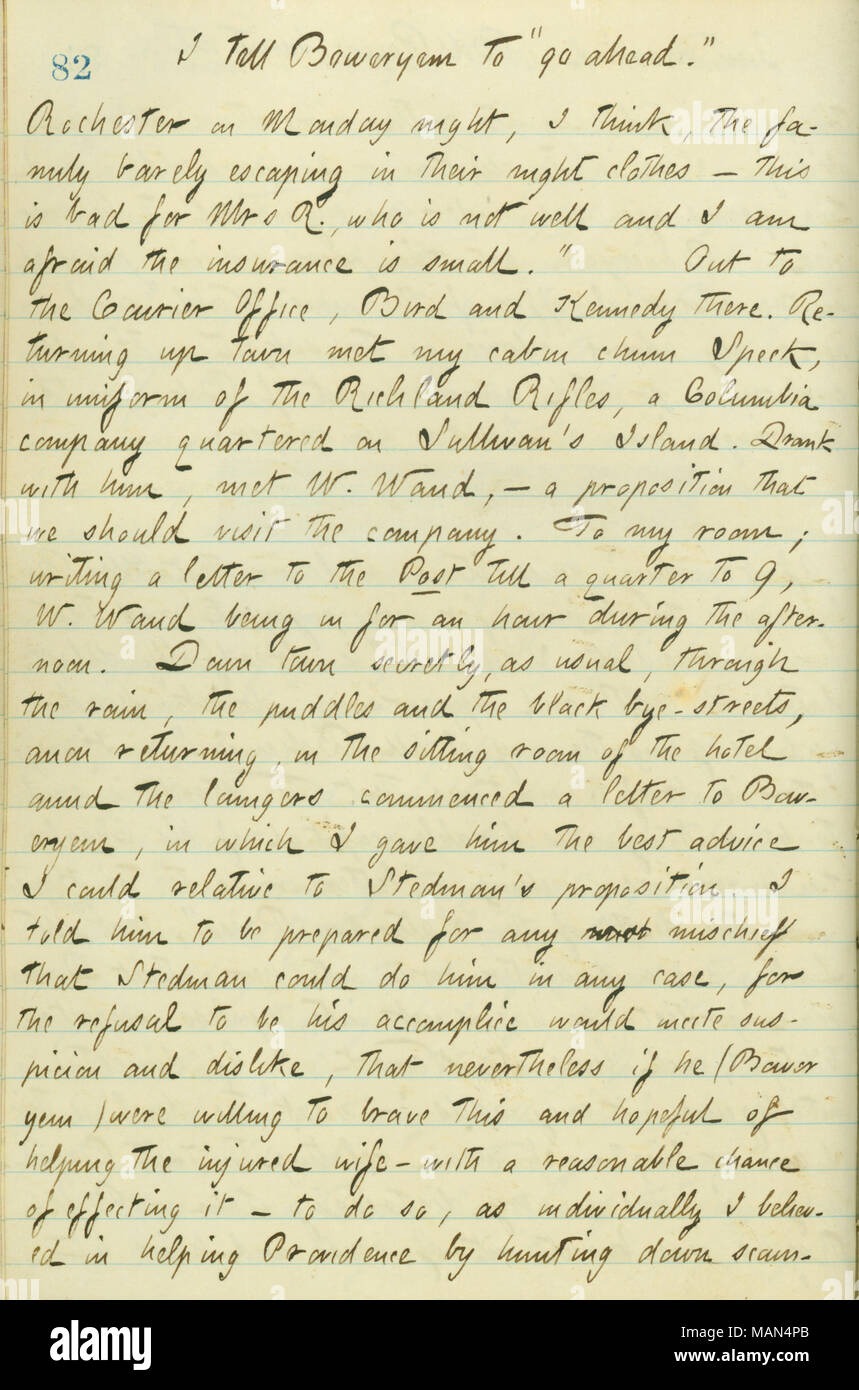 82
I tell Boweryem to "go ahead."
Rochester on Monday night, I think, the fa-
mily barely escaping in their night clothes — this
is bad for Mrs R., who is not well and I am
afraid the insurance is small." Out to
the Courier Office, Bird and Kennedy there. Re-
turning up town met my cabin chum Speck,
in uniform of the Richland Rifles, a Columbia
company quartered on Sullivan's Island. Drank
with him, met W. Waud, — a proposition that
we should visit the company. To my room;
writing a letter to the Post till a quarter to 9,
W. Waud being in for an hour during the after-
noon. Down town secretly, as usual, through
the rain, the puddles and the black bye-streets,
anon returning, in the sitting room of the hotel
amid the loungers commenced a letter to Bow-
eryem, in which I gave him the best advice
I could relative to Stedman's proposition. I
told him to be prepared for any mischief
that Stedman could do him in any case, for
the refusal to be his accomplice would incite sus-
picion and dislike, that nevertheless if he (Bower
yem) were willing to brave this and hopeful of
helping the injured wife — with a reasonable chance
of effecting it — to do so, as individually I believ-
ed in helping Providence by hunting down scoun-
alamy
alamy stock photo
Image ID: MAN4PB
www.alamy.com